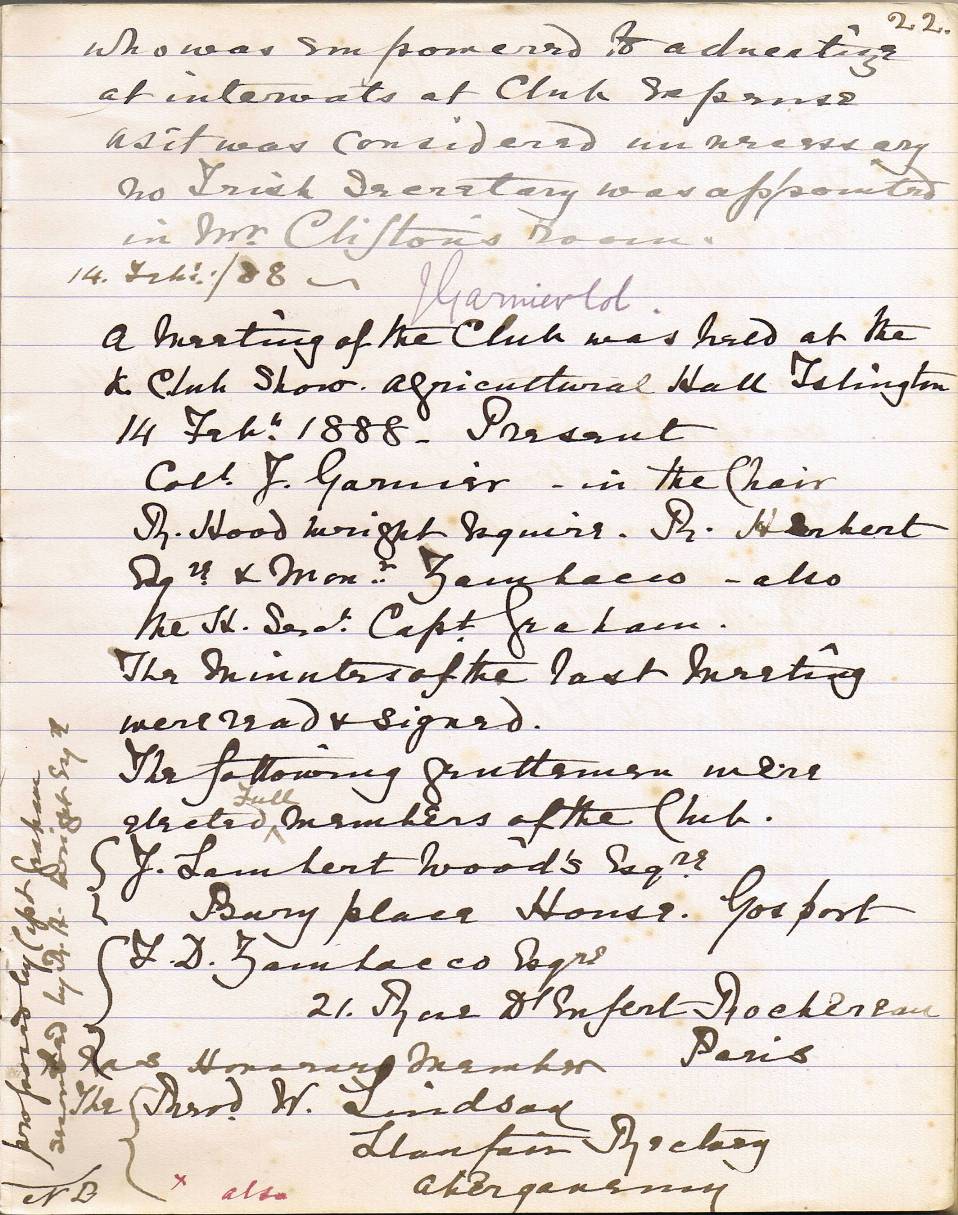 22.
who was empowered to advertize
at intervals at Club Expense
as it was considered unnecessary
no Irish Secretary was appointed
in Mr. Clifton's room.
14. Feby./88
J Garnier Col.
A Meeting of the Club was held at the
K Club Show. Agricultural Hall Islington
14 Feby. 1888 - Present
Coll. J. Garnier - in the Chair
R. Hood Wright Esquire. R. Herbert
Esqre & Monsr. Zambacco - also
the H. Secy. Capt. Graham.
The Minutes of the last Meeting
were read & signed.
The following gentlemen were
Full
elected ^ Members of the Club.
J. Lambert Wood's Esqre
Bury place House. Gosport
F. D. Zambacco Esqre
21. Rue D'Enfert-Rochereau
Paris
as Honorary Member
The Revd. W. Lindsay
Llanfair Rectory
Abergavenny
proposed by Capt Graham
seconded by R. H. Wright Esqre
NB
x also